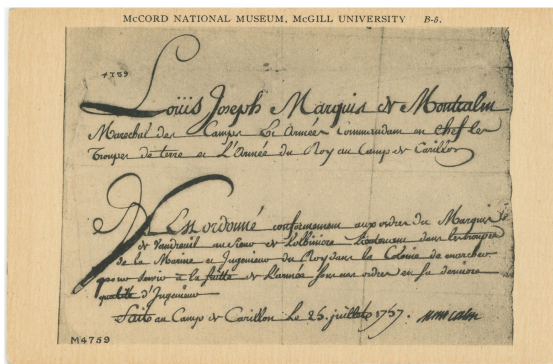 McCORD NATIONAL MUSEUM, McGILL UNIVERSITY B-5.
4759
Loüis Joseph Marquis de Montcalm
Marechal des Camps Et Armées Commandam en chef les
Trouppes de terre et L'Armée du Roy au Camp de Carillon
Il Est ordonné conformement aux ordres du Marquis
de Vaudreuil au Sieur de Lotbiniere Lieutenant dans les trouppes
de la Marine et Ingenieur du Roy dans la Colonie de marcher
pour servir à la suitte de L'armée sous nos ordres en sa derniere
qualité d'Ingenieur
Fait au Camp de Carillon Le 25. juillet 1757. Montcalm
M4759